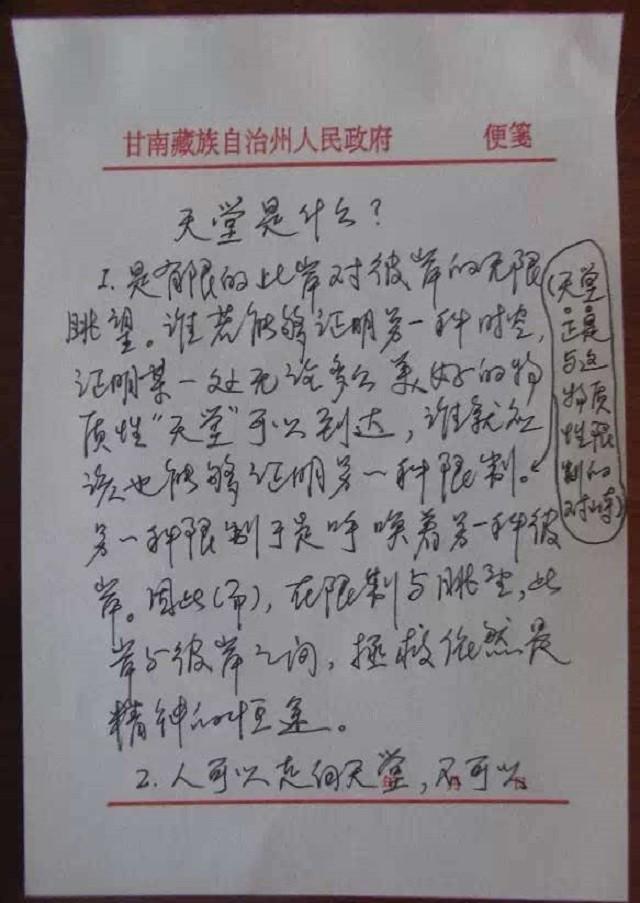 甘南藏族自治州人民政府 便笺
天堂是什么?
1.是有限的此岸对彼岸的无限
眺望。谁若能够证明另一种时空,
证明某一处无论多么美好的物
质性“天堂”可以到达,谁就应
该也能够证明另一种限制。
另一种限制于是呼唤着另一种彼
岸。因此(而),在限制与眺望,此
岸与彼岸之间,拯救依然是
精神的恒途。
2.人可以走向天堂,不可以
(天堂
正是
与这
物质
性限
制的
对峙)